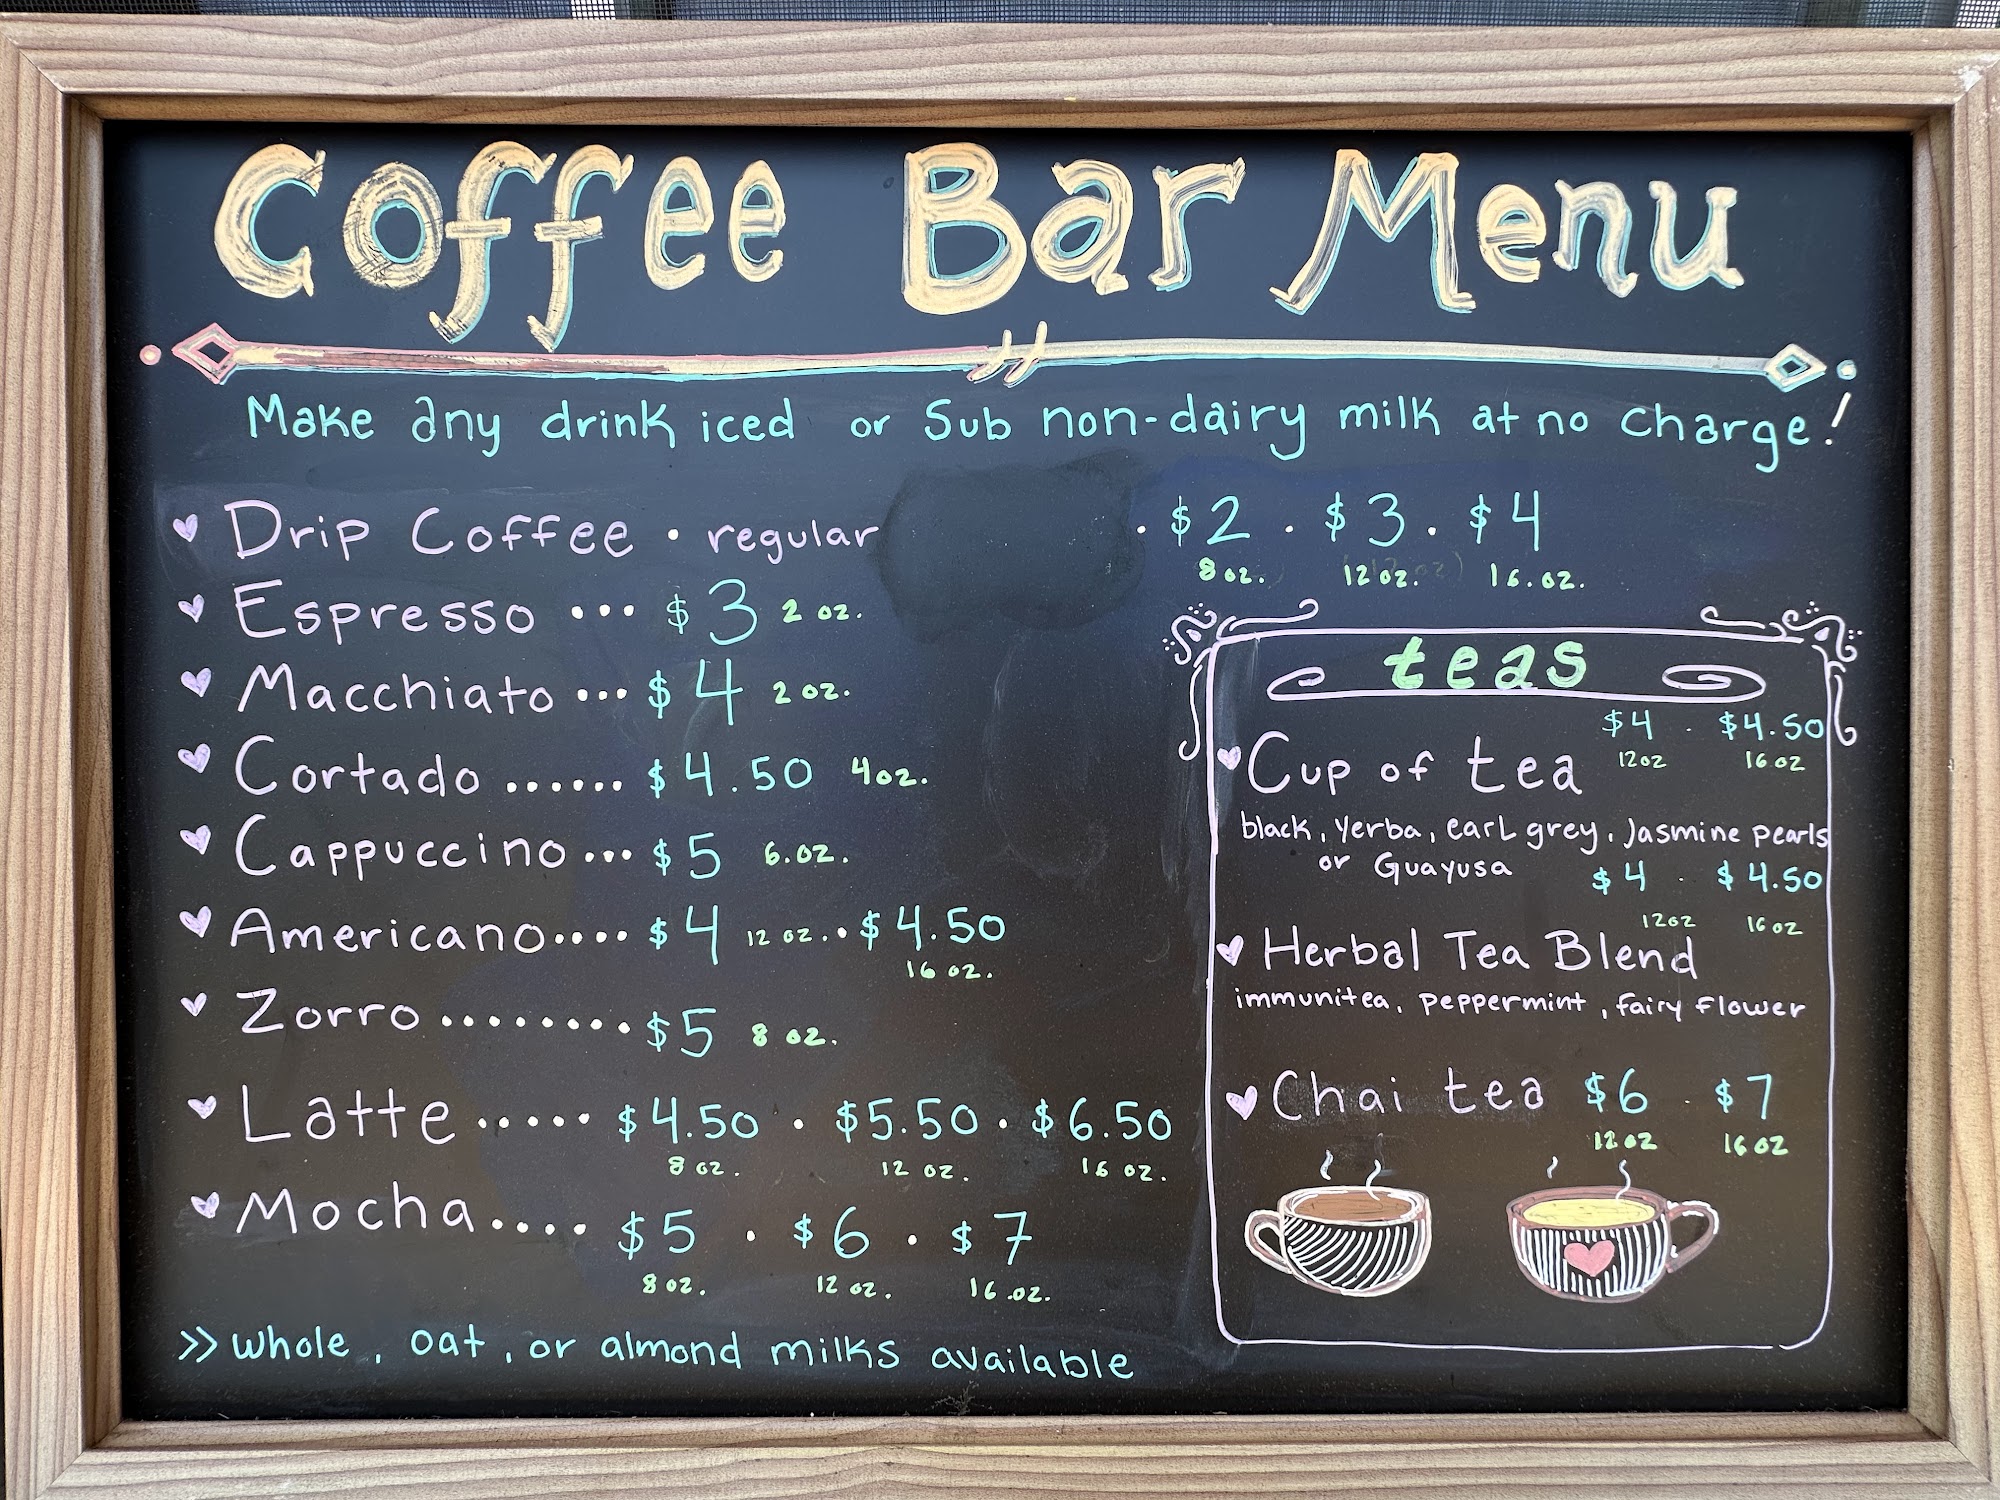 Coffee Bar Menu
Make any drink iced or Sub non-dairy milk at no charge!
Drip Coffee · regular · $2 · $3 · $4
8 oz. 12 oz. 16.oz.
Espresso ... $3 2 oz.
Macchiato ... $4 2 oz.
Cortado ...... $4.50 4oz.
Cappuccino ... $5 6.oz.
Americano .... $4 12 oz. · $4.50
16 oz.
Zorro ........ $5 8 oz.
Latte ..... $4.50 · $5.50 · $6.50
8 oz. 12 oz. 16 oz.
Mocha .... $5 · $6 · $7
8 oz. 12 oz. 16.oz.
>> whole, oat, or almond milks available
teas
$4 · $4.50
Cup of tea 12oz 16oz
black, Yerba, earl grey, Jasmine pearls
or Guayusa $4 · $4.50
12oz 16oz
Herbal Tea Blend
immunitea, peppermint, fairy flower
Chai tea $6 · $7
12oz 16oz